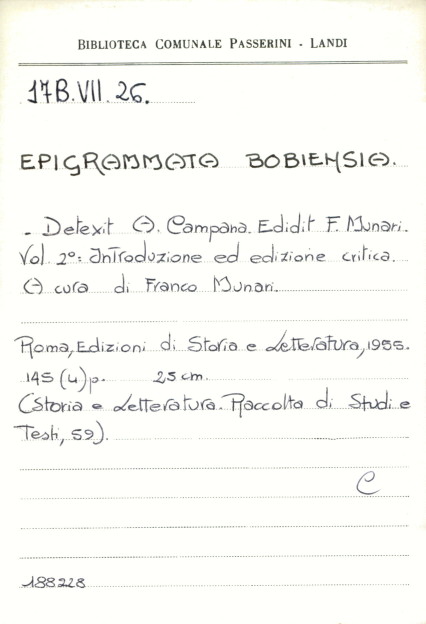 BIBLIOTECA COMUNALE PASSERINI - LANDI
17B.VII.26.
EPIGRAMMATA BOBIENSIA.
- Detexit A. Campana. Edidit F. Munari.
Vol. 2°: Introduzione ed edizione critica.
A cura di Franco Munari.
Roma, Edizioni di Storia e Letteratura, 1955.
145 (4) p. 25 cm.
(Storia e Letteratura. Raccolta di Studi e
Testi, 59).
C
188228